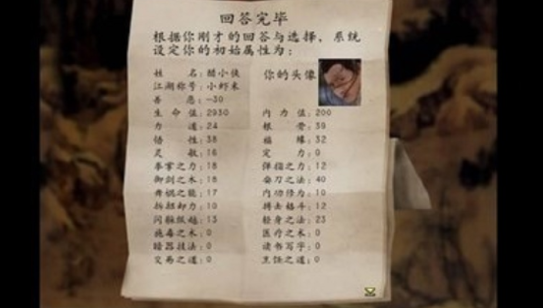 回答完毕
根据你刚才的回答与选择、系统
设定你的初始属性为:
姓 名:猫小侠 你的头像
江湖称号:小虾米
善 恶:-30
生 命 值:2930 内 力 值:200
力 道:24 根 骨:39
悟 性:38 福 缘:32
灵 敏:16 定 力:0
拳掌之力:16 弹指之力:12
御剑之术:18 耍刀之法:40
舞棍之能:17 内功修为:10
拆招卸力:10 搏击格斗:12
闪躲纵越:13 轻身之法:23
施毒之术:0 医疗之术:0
暗器技法:0 读书写字:0
交易之道:0 烹饪之道:0